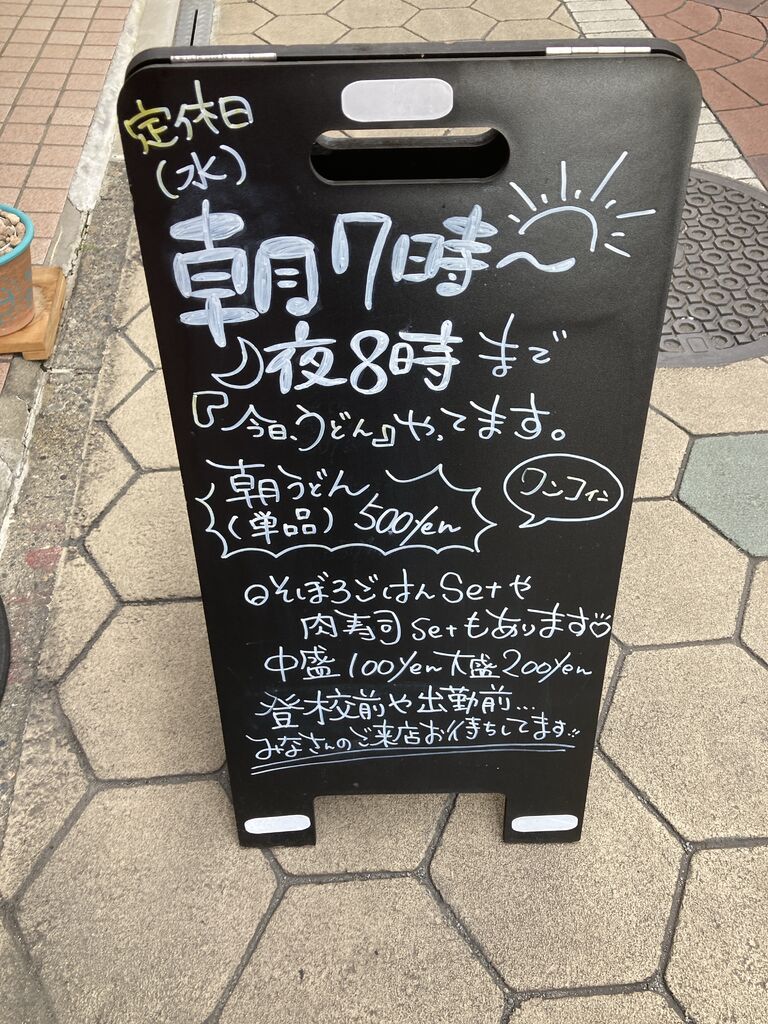 定休日
(水)
朝7時〜
夜8時まで
『今日、うどん』やってます。
朝うどん
(単品) 500yen
ワンコイン
◎そぼろごはんSetや
肉寿司Setもあります♡
中盛100yen大盛200yen
登校前や出勤前...
みなさんのご来店お待ちしてます!!